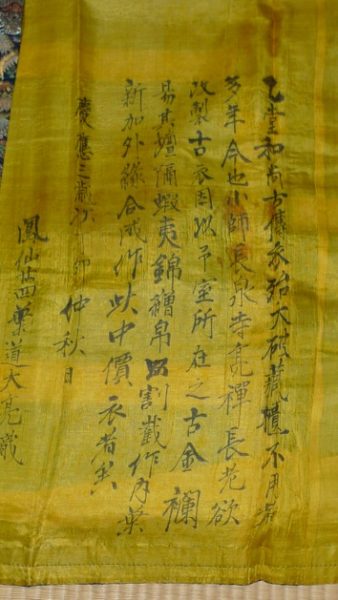 乙堂和尚古傳衣殆大破藏櫃不用者
多年今也小師長泉寺亮禪長老欲
改製古衣因以予室所在之古金襴
易其壇隔蝦夷錦繒帛割截作月葉
新加外緣合成作此中價衣者
慶應三歳卯仲秋日
鳳仙葉道大亮識